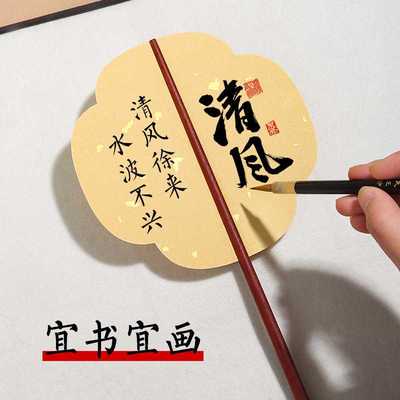 清风
清风徐来
水波不兴
宜书宜画